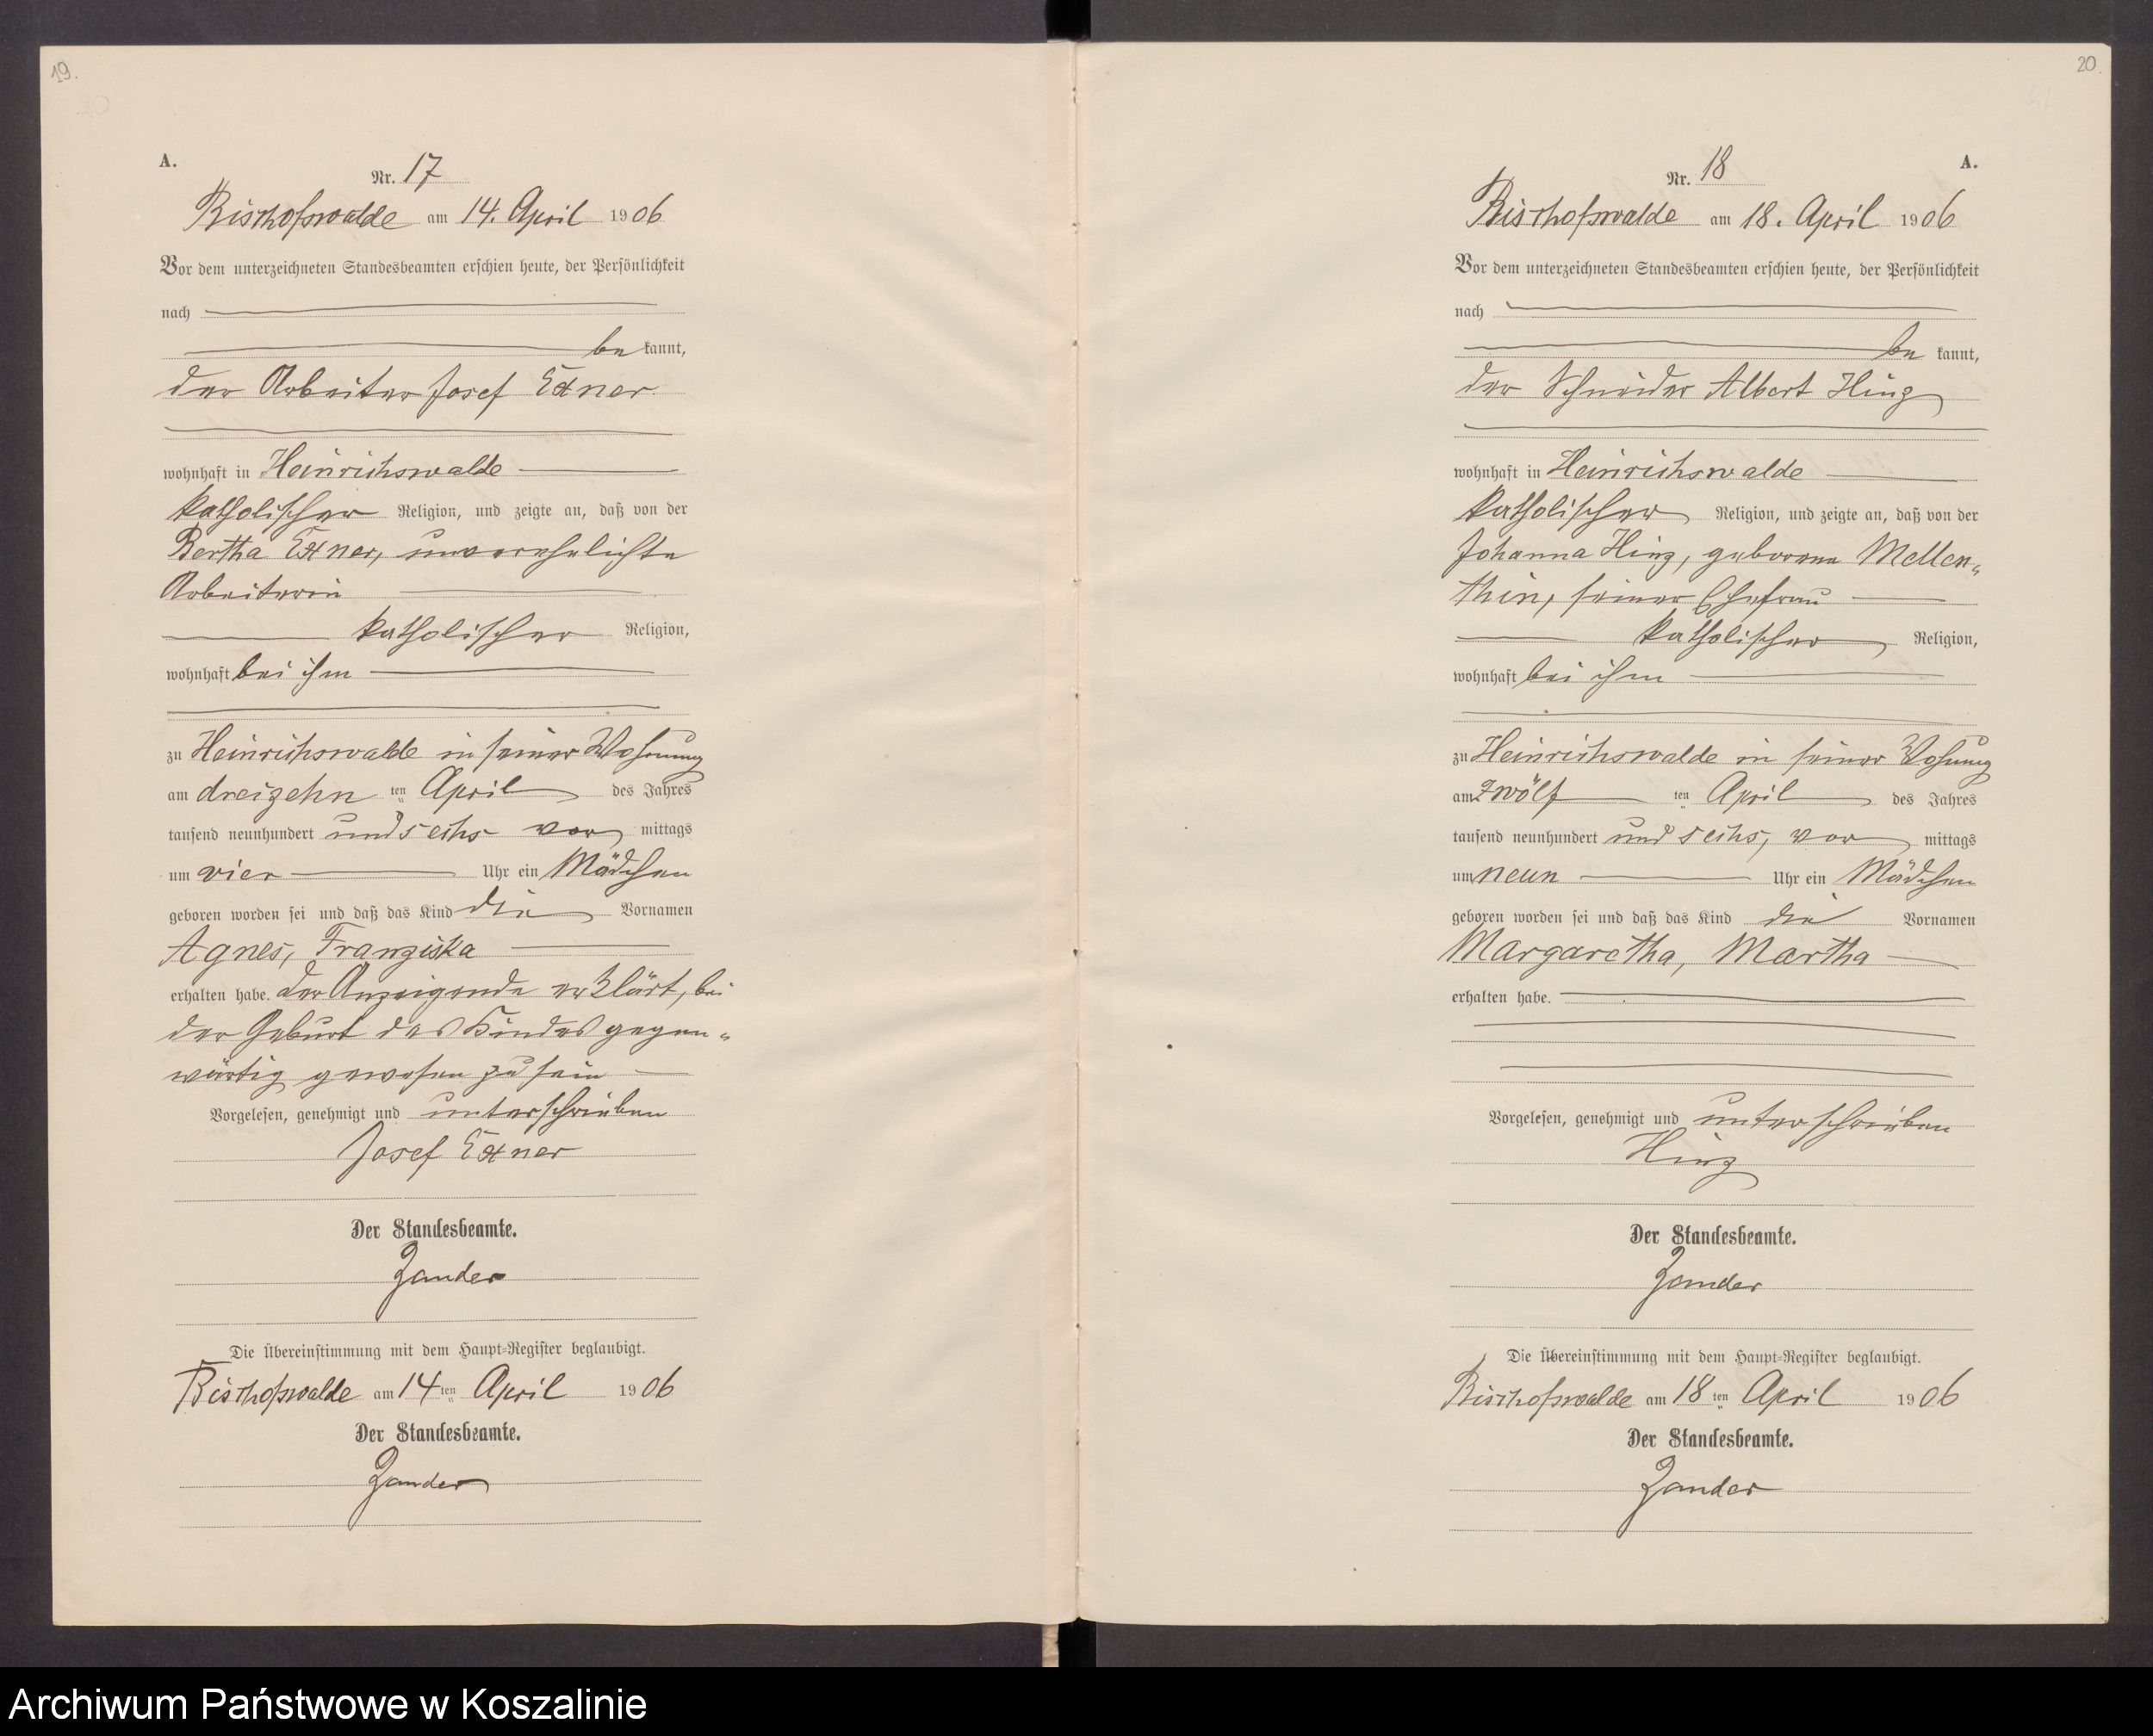 19.
A.
Nr. 17
Bischofswalde am 14. April 1906
Vor dem unterzeichneten Standesbeamten erschien heute, der Persönlichkeit
nach
be kannt,
der Arbeiter Josef Exner
wohnhaft in Heinrichswalde
katholischer Religion, und zeigte an, daß von der
Bertha Exner, unverehelichte
Arbeiterin
katholischer Religion,
wohnhaft bei ihm
zu Heinrichswalde in seiner Wohnung
am dreizehn ten April des Jahres
tausend neunhundert und sechs vor mittags
um vier Uhr ein Mädchen
geboren worden sei und daß das Kind die Vornamen
Agnes, Franziska
erhalten habe. Der Anzeigende erklärt, bei
der Geburt des Kindes gegen-
wärtig gewesen zu sein
Vorgelesen, genehmigt und unterschrieben
Josef Exner
Der Standesbeamte.
Zander
Die Übereinstimmung mit dem Haupt-Register beglaubigt.
Bischofswalde am 14 ten April 1906
Der Standesbeamte.
Zander
20.
A.
Nr. 18
Bischofswalde am 18. April 1906
Vor dem unterzeichneten Standesbeamten erschien heute, der Persönlichkeit
nach
be kannt,
der Schneider Albert Hinz
wohnhaft in Heinrichswalde
katholischer Religion, und zeigte an, daß von der
Johanna Hinz, geborene Mellen-
thin, seiner Ehefrau
katholischer Religion,
wohnhaft bei ihm
zu Heinrichswalde in seiner Wohnung
am zwölf ten April des Jahres
tausend neunhundert und sechs, vor mittags
um neun Uhr ein Mädchen
geboren worden sei und daß das Kind die Vornamen
Margaretha, Martha
erhalten habe.
Vorgelesen, genehmigt und unterschrieben
Hinz
Der Standesbeamte.
Zander
Die Übereinstimmung mit dem Haupt-Register beglaubigt.
Bischofswalde am 18 ten April 1906
Der Standesbeamte.
Zander
Archiwum Państwowe w Koszalinie